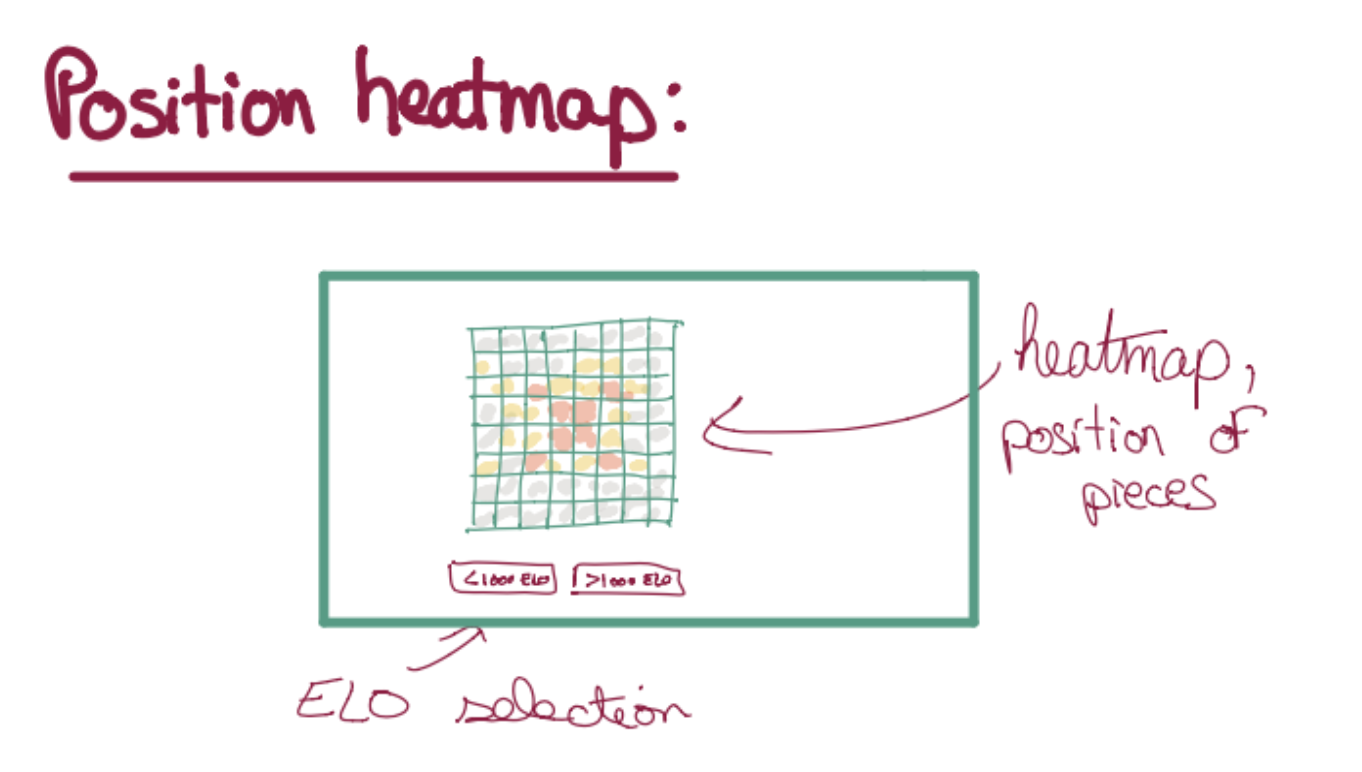 Position heatmap:
heatmap,
position of
pieces
<1000 ELO >1000 ELO
ELO selection